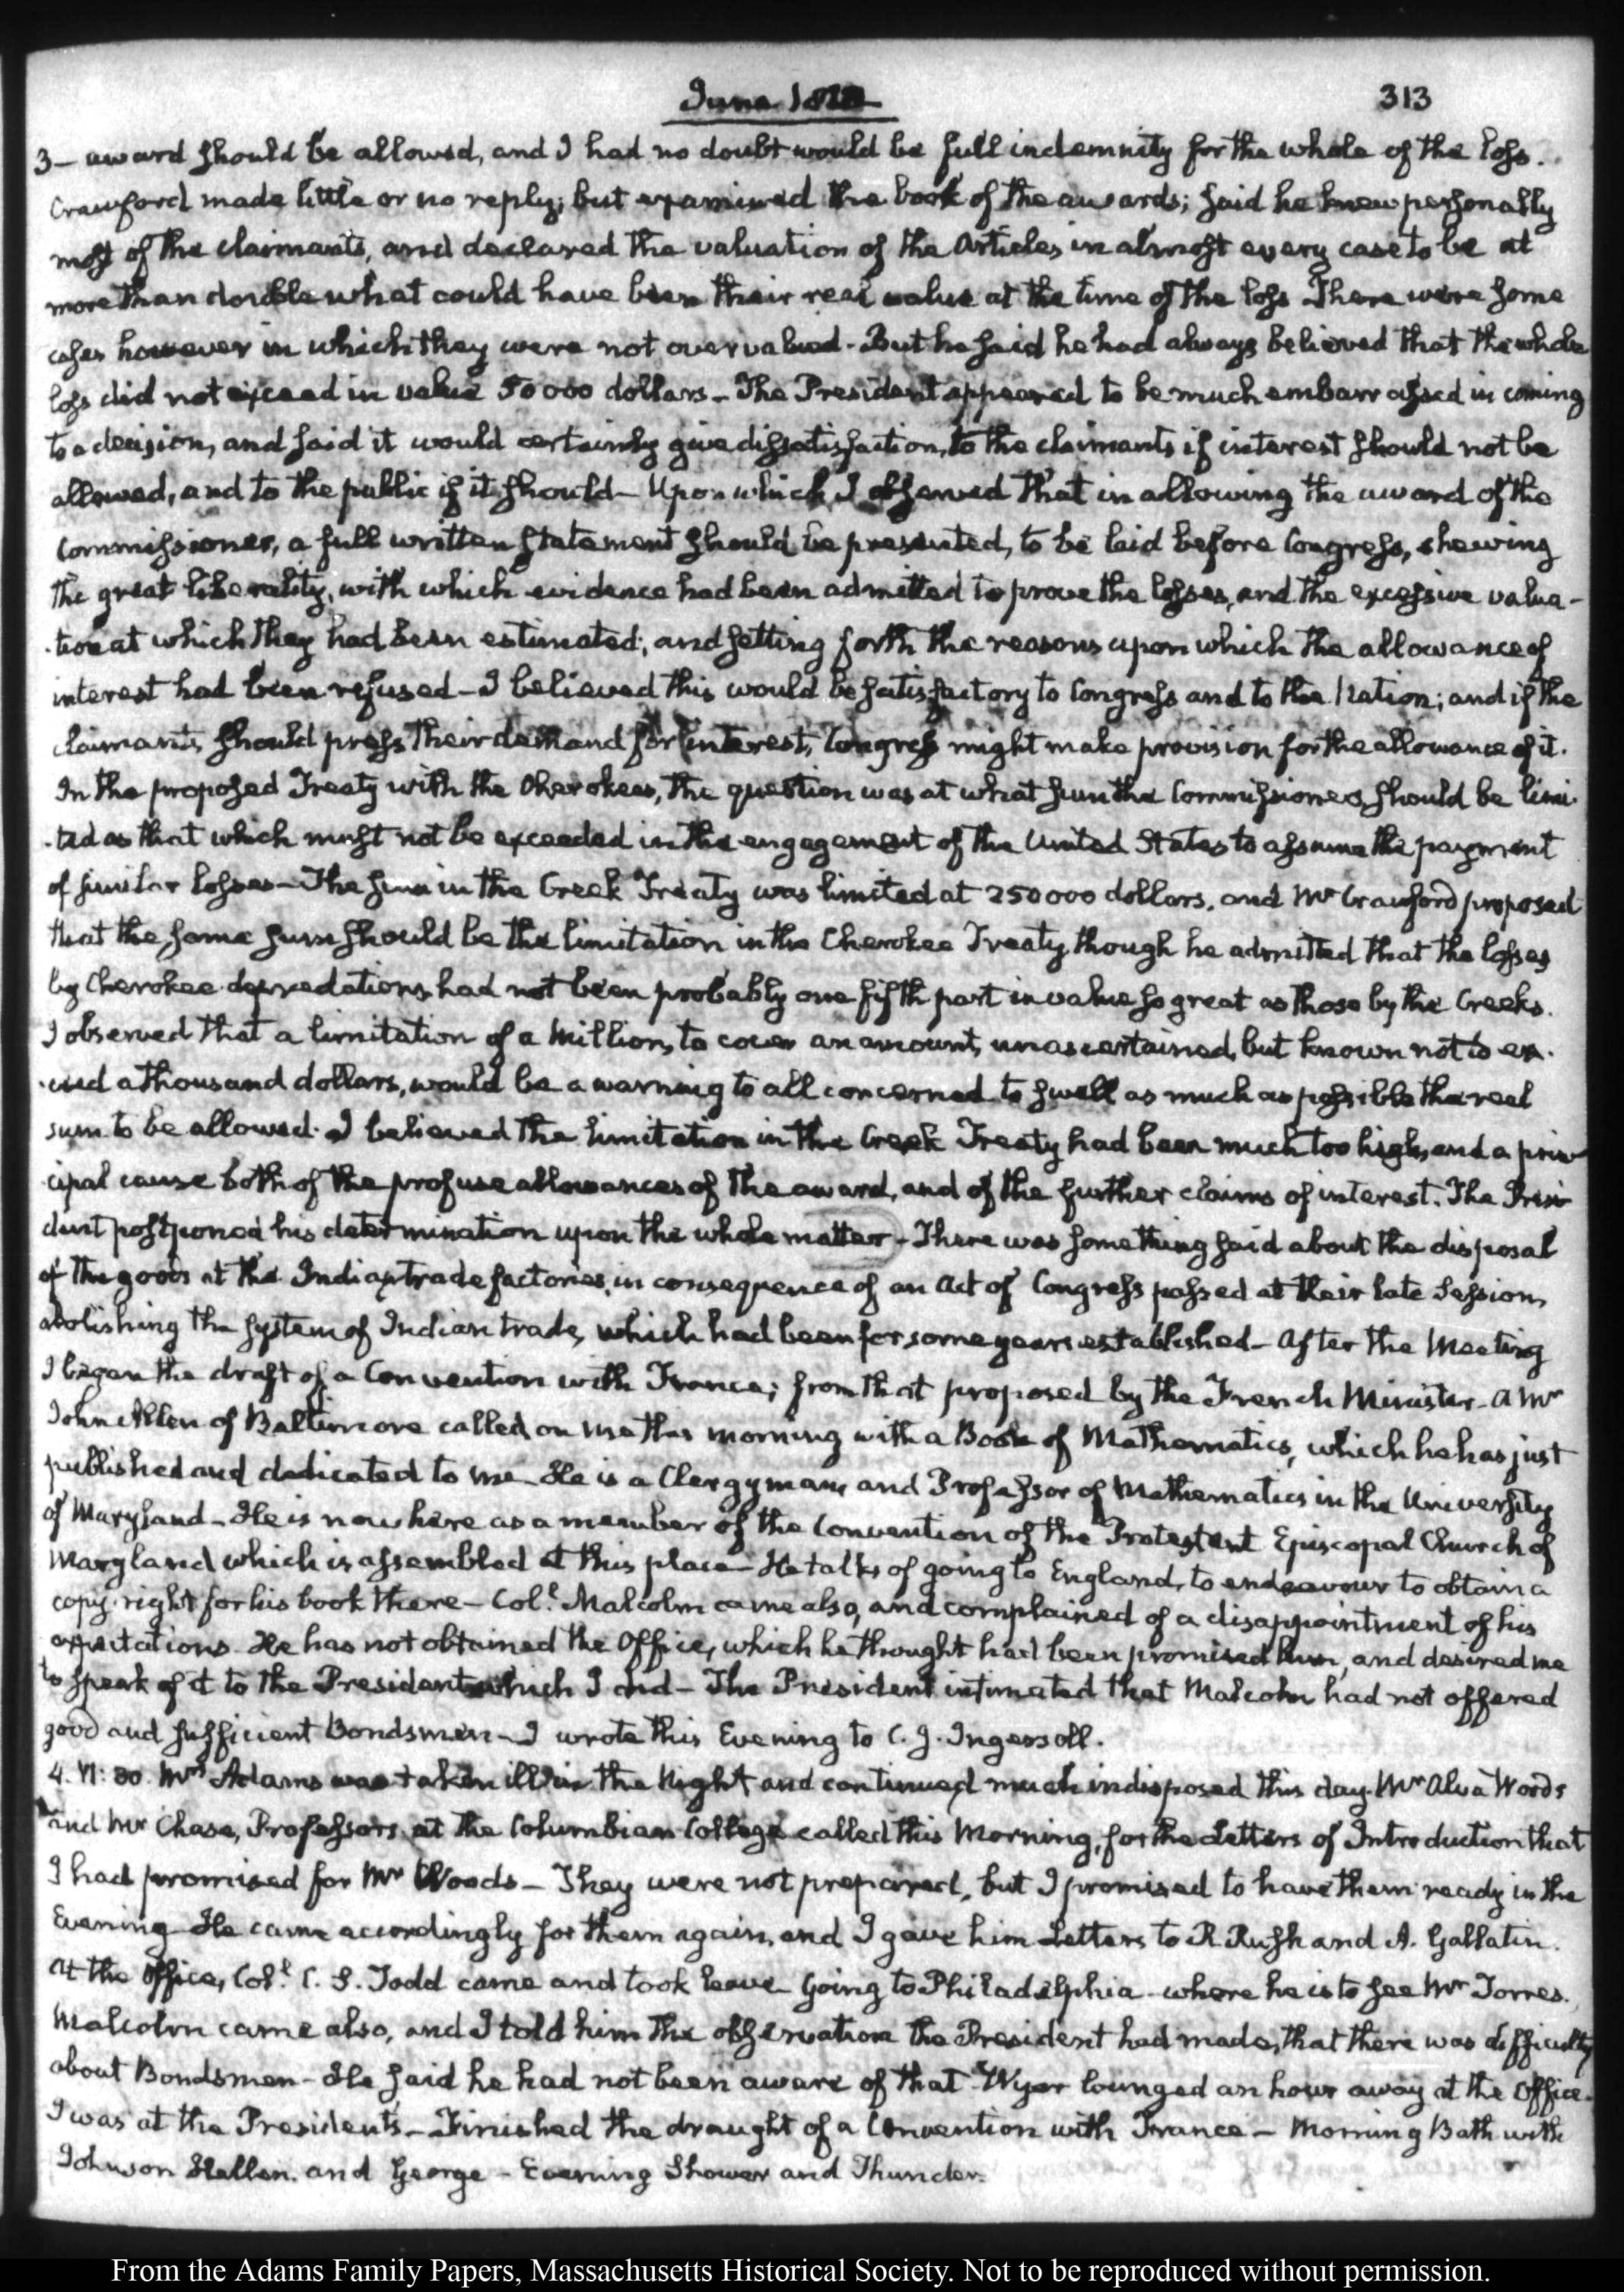 June 1822
313
3— award should be allowed, and I had no doubt would be full indemnity for the whole of the loss.
Crawford made little or no reply; but examined the book of the awards; said he knew personally
most of the claimants, and declared the valuation of the Articles in almost every case to be at
more than double what could have been their real value at the time of the loss There were some
cases however in which they were not overvalued - But he said he had always believed that the whole
loss did not exceed in value 50000 dollars - The President appeared to be much embarrassed in coming
to a decision, and said it would certainly give dissatisfaction, to the claimants if interest should not be
allowed, and to the public if it should - Upon which I observed that in allowing the award of the
Commissioner, a full written statement should be presented, to be laid before Congress, shewing
the great liberality, with which evidence had been admitted to prove the losses, and the excessive valua-
-tion at which they had been estimated; and setting forth the reasons upon which the allowance of
interest had been refused - I believed this would be satisfactory to Congress and to the Nation; and if the
claimants should press their demand for interest, Congress might make provision for the allowance of it.
In the proposed Treaty with the Cherokees, the question was at what sum the Commissioners should be limi-
-ted as that which must not be exceeded in the engagement of the United States to assume the payment
of similar losses - The sum in the Creek Treaty was limited at 250000 dollars, and Mr Crawford proposed
that the same sum should be the limitation in the Cherokee Treaty though he admitted that the losses
by Cherokee depredations had not been probably one fifth part in value so great as those by the Creeks.
I observed that a limitation of a Million, to cover an amount, unascertained, but known not to ex-
-ceed a thousand dollars, would be a warning to all concerned to swell as much as possible the real
sum to be allowed. I believed the limitation in the Creek Treaty had been much too high, and a prin
cipal cause both of the profuse allowances of the award, and of the further claims of interest. The Presi
dent postponed his determination upon the whole matter - There was something said about the disposal
of the goods at the Indian trade factories, in consequence of an Act of Congress passed at their late Session,
abolishing the system of Indian trade, which had been for some years established - After the Meeting
I began the draft of a Convention with France; from that proposed by the French Minister - A Mr
John Allen of Baltimore called on me this morning with a Book of Mathematics, which he has just
published and dedicated to me - He is a Clergyman, and Professor of Mathematics in the University
of Maryland - He is now here as a member of the Convention of the Protestant Episcopal Church of
Maryland which is assembled at this place - He talks of going to England, to endeavour to obtain a
copy-right for his book there - Coll. Malcolm came also, and complained of a disappointment of his
expectations. He has not obtained the Office, which he thought had been promised him, and desired me
to speak of it to the President which I did - The President intimated that Malcolm had not offered
good and sufficient Bondsmen - I wrote this Evening to C. J. Ingersoll.
4. VI: 30. Mrs Adams was taken ill in the Night and continued much indisposed this day. Mr Alva Woods
and Mr Chase, Professors at the Columbian College called this Morning, for the Letters of Introduction that
I had promised for Mr Woods - They were not prepared, but I promised to have them ready in the
Evening - He came accordingly for them again, and I gave him Letters to R. Rush and A. Gallatin.
At the Office, Coll. C. S. Todd came and took leave - Going to Philadelphia where he is to see Mr Torres.
Malcolm came also, and I told him the observation the President had made, that there was difficulty
about Bondsmen - He said he had not been aware of that - Wyer lounged an hour away at the Office.
I was at the President's - Finished the draught of a Convention with France - Morning Bath with
Johnson Hellen. and George - Evening Shower and Thunder.
From the Adams Family Papers, Massachusetts Historical Society. Not to be reproduced without permission.